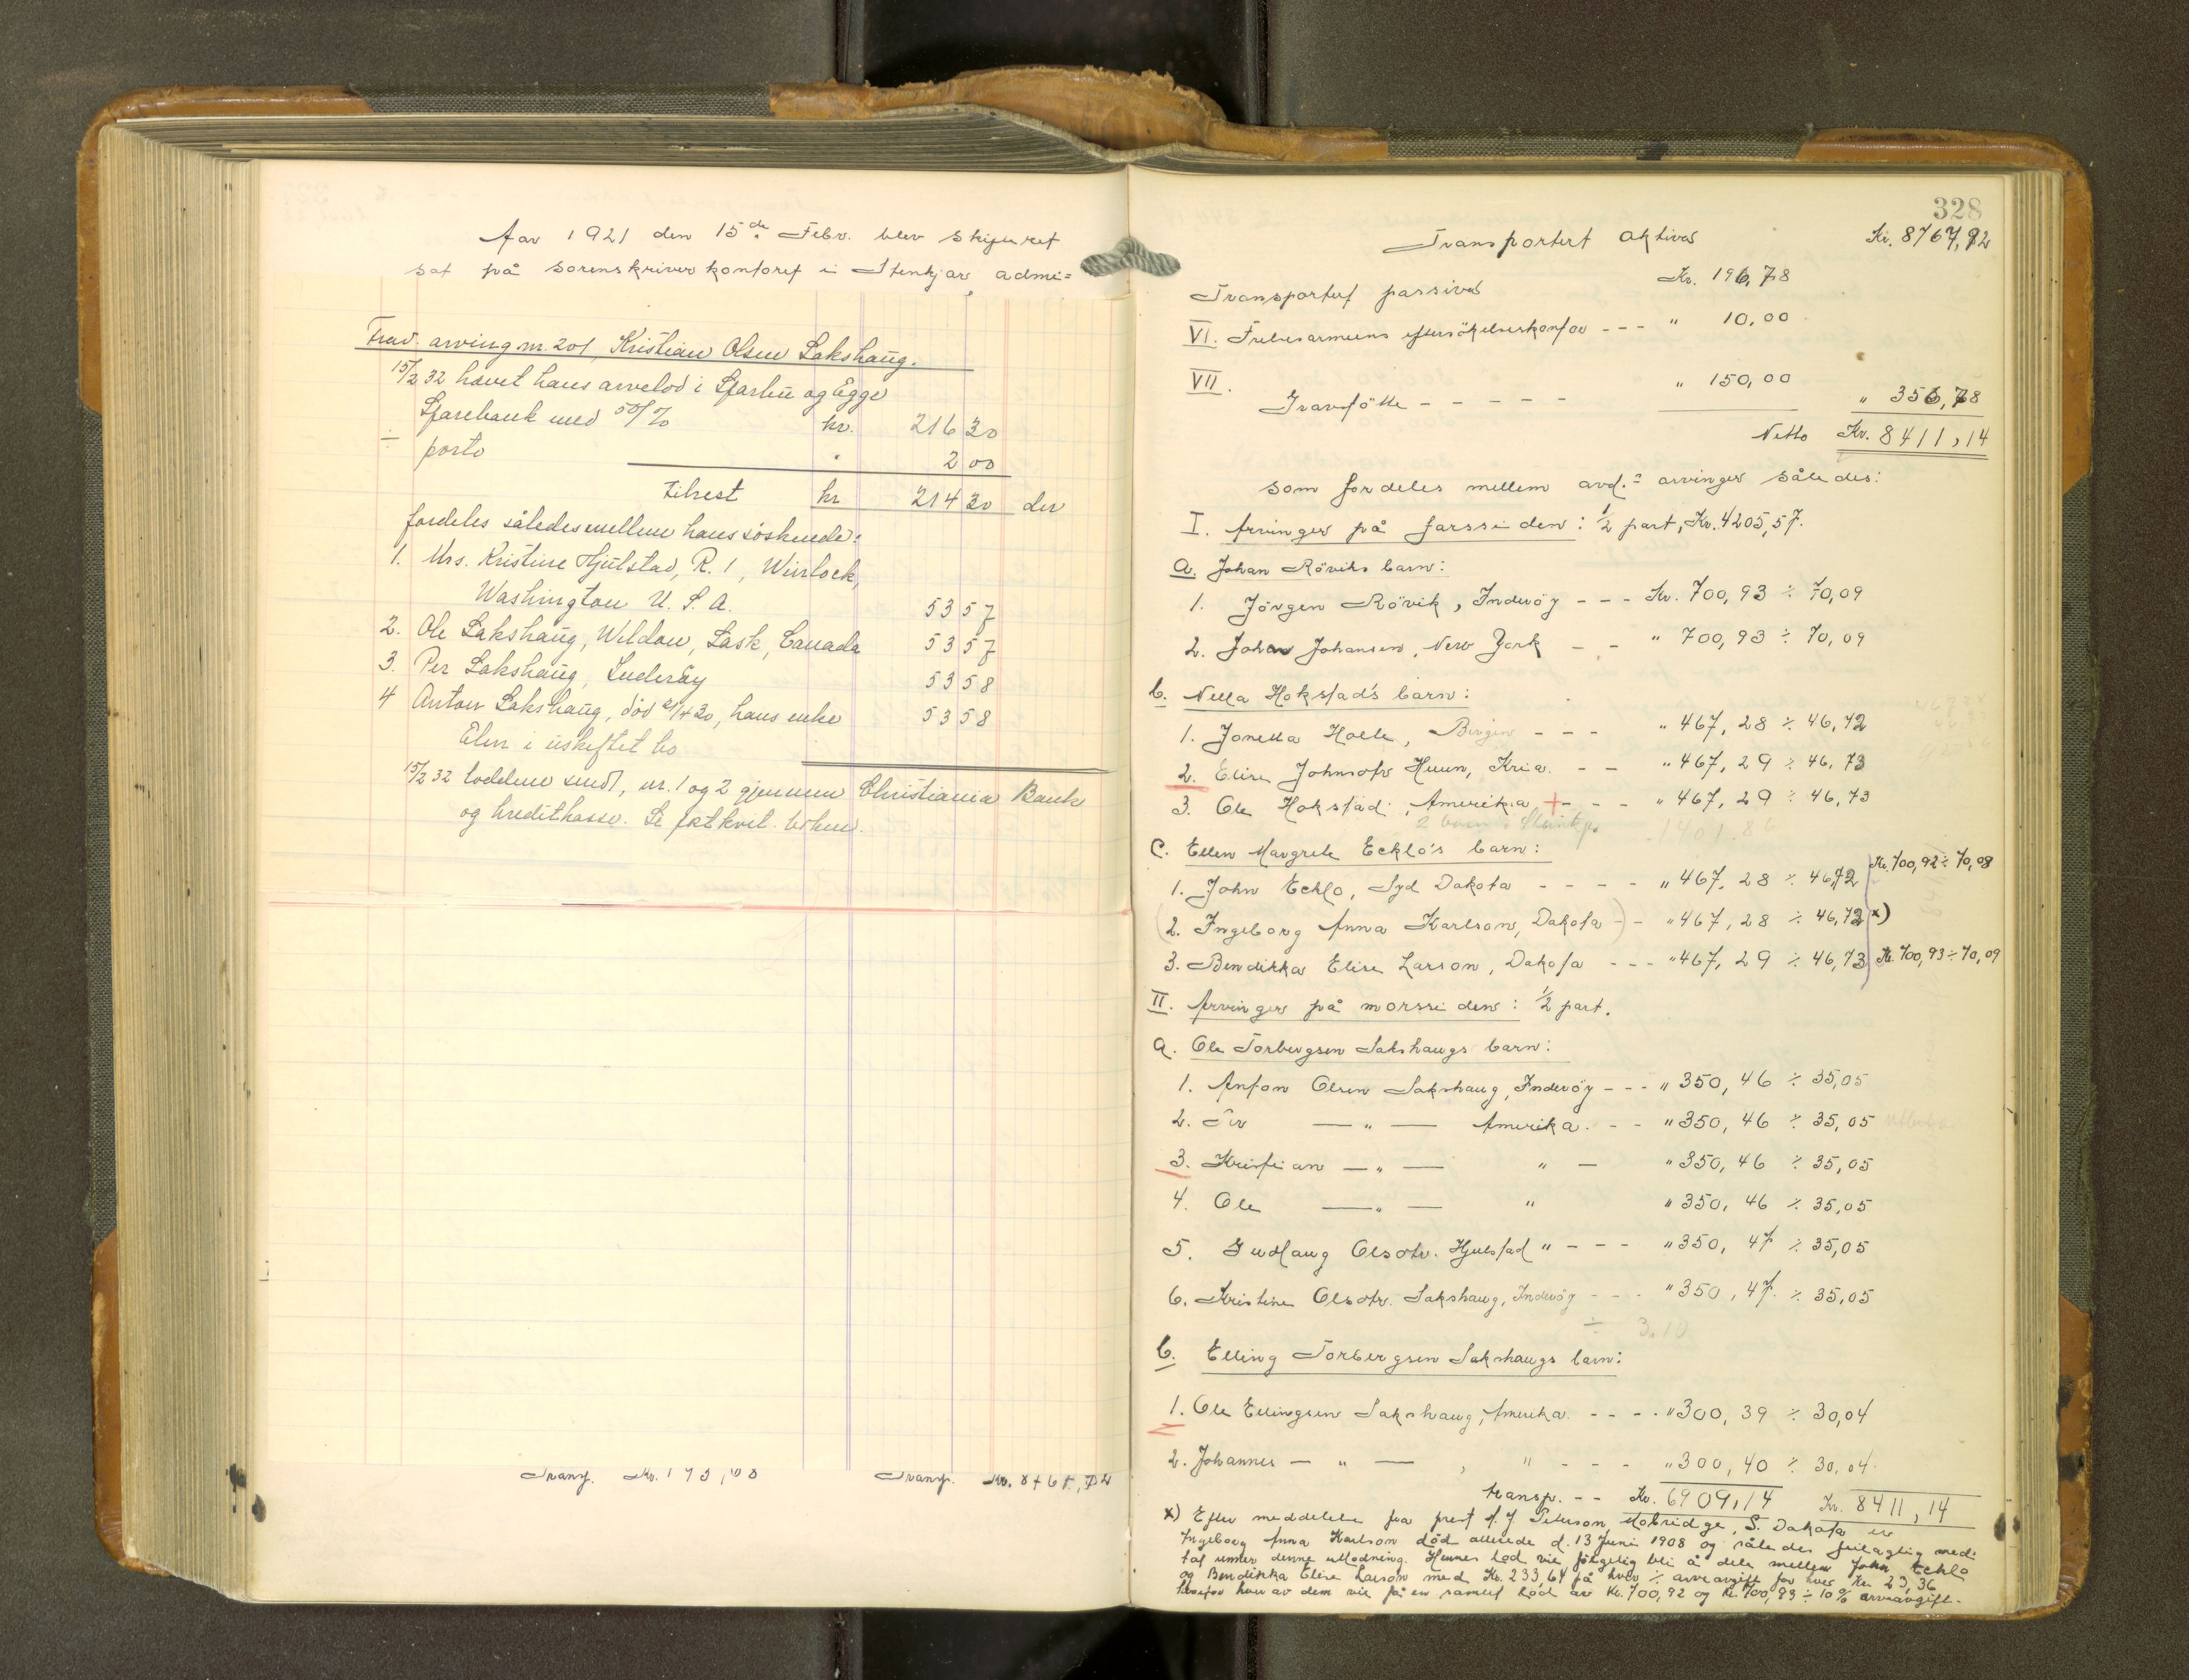 Aar 1921 den 15de Febr. blev skifteret
sat på sorenskriverkontoret i Stenkjær admi=
Frav. arving nr. 201, Kristian Olsen Sakshaug.
15/2 32 hævet hans arvelod i Sparbu og Egge
Sparebank med 50/70 kr. 216 30
÷ porto " 2 00
tilrest kr 214 30 der
fordeles således mellem hans søskende:
1. Mrs. Kristine Hjulstad, R. 1, Winlock,
Washington U. S. A. 53 57
2. Ole Sakshaug, Weldon, Sask, Canada 53 57
3. Per Sakshaug, Inderøy 53 58
4 Anton Sakshaug, død 21/4 30, hans enke 53 58
Elen i uskiftet bo
15/2 32 loddene sendt, nr. 1 og 2 gjennem Christiania Bank
og Kreditkasse. Se postkvit. boken.
Transp. Kr. 193,08 Transp. Kr. 8767,92
328
Transportert aktiva Kr. 8767,92
Transportert passiva Kr. 196,78
VI. Frelsesarmeens eftersøkelseskontor - - - " 10,00
VII. Gravstøtte - - - - - " 150,00 " 356,78
Netto Kr. 8411,14
som fordeles mellem avd.s arvinger således:
I. Arvinger på farssiden: 1/2 part, Kr. 4205,57.
a. Johan Røviks barn:
1. Jørgen Røvik, Inderøy - - - Kr. 700,93 ÷ 70,09
2. Johan Johansen, New York - - " 700,93 ÷ 70,09
b. Nella Hokstad's barn:
1. Jonetta Holte, Bergen - - - " 467,28 ÷ 46,72
2. Elise Johnsdtr Huun, Kria. - - " 467,29 ÷ 46,73
3. Ole Hokstad, Amerika + - - - " 467,29 ÷ 46,73
2 barn i Steinkjer 1401.86
c. Ellen Margrete Ecklo's barn:
1. John Ecklo, Syd Dakota - - - - " 467,28 ÷ 46,72 Kr. 700,92 ÷ 70,08
(2. Ingeborg Anna Karlson, Dakota) - - " 467,28 ÷ 46,73 x)
3. Bendikka Elise Larson, Dakota - - - " 467,29 ÷ 46,73 Kr. 700,93 ÷ 70,09
II. Arvinger på morssiden: 1/2 part.
a. Ole Torbergsen Sakshaugs barn:
1. Anton Olsen Sakshaug, Inderøy - - - " 350,46 ÷ 35,05
2. Per — " — Amerika. - - " 350,46 ÷ 35,05
3. Kristian — " — " — " 350,46 ÷ 35,05
4. Ole — " — " " 350,46 ÷ 35,05
5. Gudlaug Olsdtr. Hjulstad " - - - " 350,47 ÷ 35,05
6. Kristine Olsdtr. Sakshaug, Inderøy - - - " 350,47 ÷ 35,05
÷ 3.10
b. Elling Torbergsen Sakshaugs barn:
1. Ole Ellingsen Sakshaug, Amerika. - - - - " 300,39 ÷ 30,04
2. Johannes — " — , " - - - " 300,40 ÷ 30,04.
transp. - - Kr. 6909,14 Kr. 8411,14
x) Efter meddelelse fra prest A. J. Peterson Mobridge, S. Dakota er
Ingeborg Anna Karlson død allerede d. 13 Juni 1908 og således feilagtig med:
tat under denne utlodning. Hennes lod vil følgelig bli å dele mellem John Ecklo
og Bendikka Elise Larson med Kr. 233,64 på hver ÷ arveavgift for hver Kr. 23,36
hvorfor hver av dem vil få en samlet lod av Kr. 700,92 og Kr. 700,93 ÷ 10 % arveavgift.